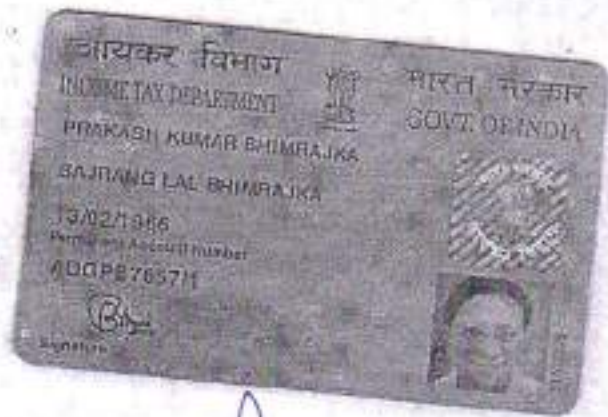 आयकर विभाग
भारत सरकार
INCOME TAX DEPARTMENT
GOVT. OF INDIA
PRAKASH KUMAR BHIMRAJKA
BAJRANG LAL BHIMRAJKA
13/02/1966
Permanent Account Number
Signature